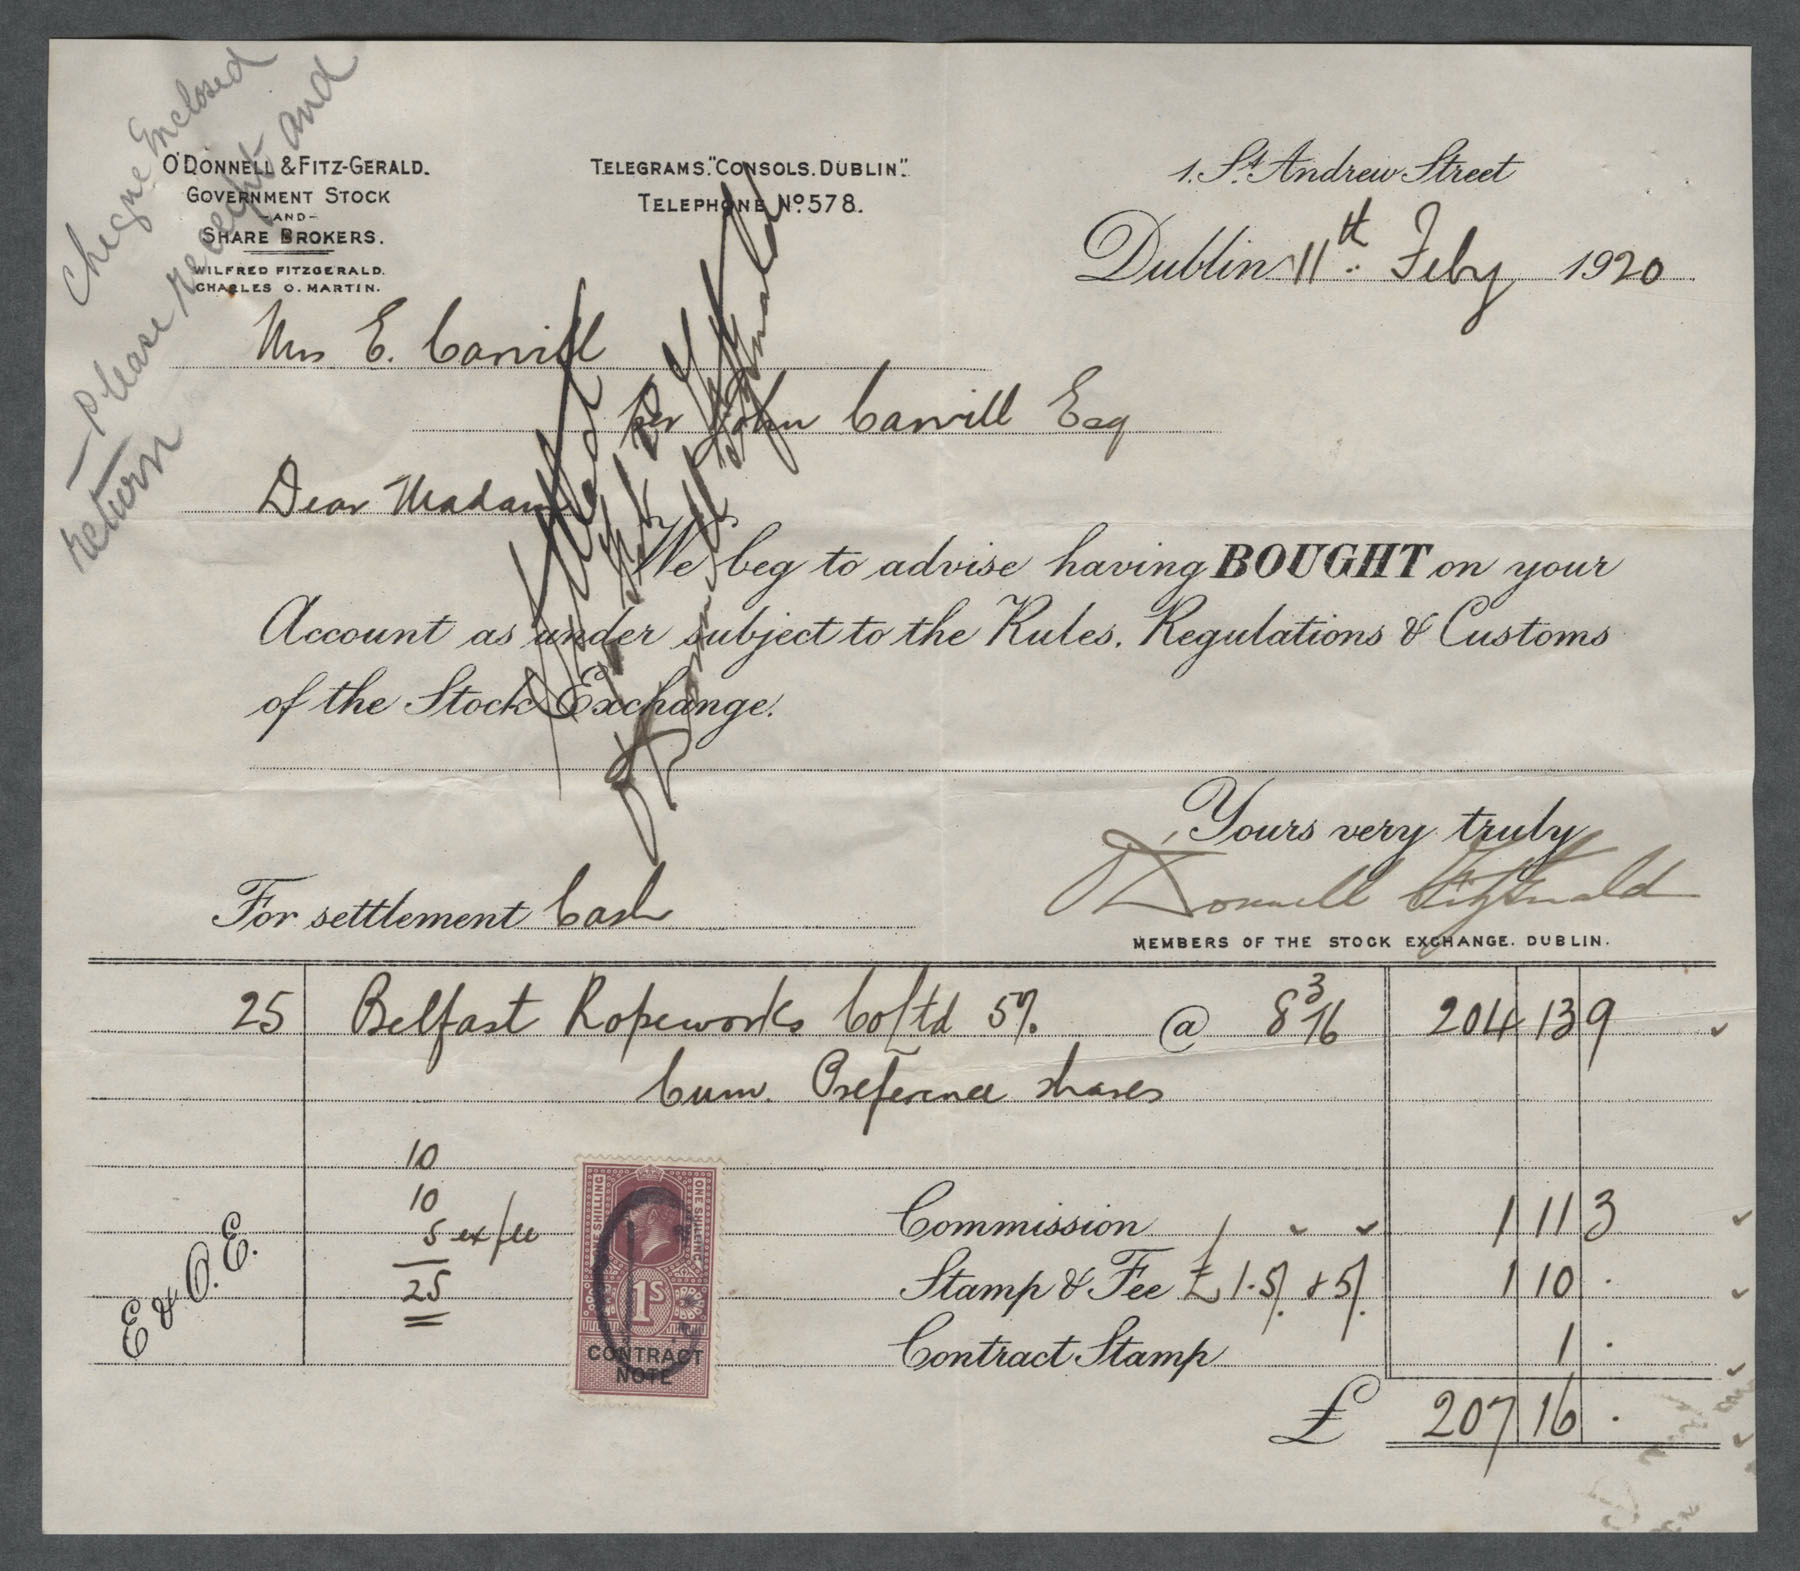 Cheque Enclosed
— please receipt and
return
O'DONNELL & FITZ-GERALD.
GOVERNMENT STOCK
-AND-
SHARE BROKERS.
WILFRED FITZGERALD.
CHARLES O. MARTIN.
TELEGRAMS. "CONSOLS. DUBLIN".
TELEPHONE No. 578.
1. St. Andrew Street
Dublin 11th Feby 1920
Mrs E. Carvill
per John Carvill Esq
Dear Madam
We beg to advise having BOUGHT on your
Account as under subject to the Rules. Regulations & Customs
of the Stock Exchange.
Yours very truly
O'Donnell Fitzgerald
MEMBERS OF THE STOCK EXCHANGE. DUBLIN.
For settlement Cash
25 Belfast Ropeworks Co Ltd 5% @ 8 3/16 204 13 9
Cum. Preference shares
10
10
5 ex fee
25
E & O. E.
ONE SHILLING
ONE SHILLING
1S
CONTRACT
NOTE
Commission 1 11 3
Stamp & Fee £1.5/. & 5/. 1 10 .
Contract Stamp 1 .
£ 207 16 .